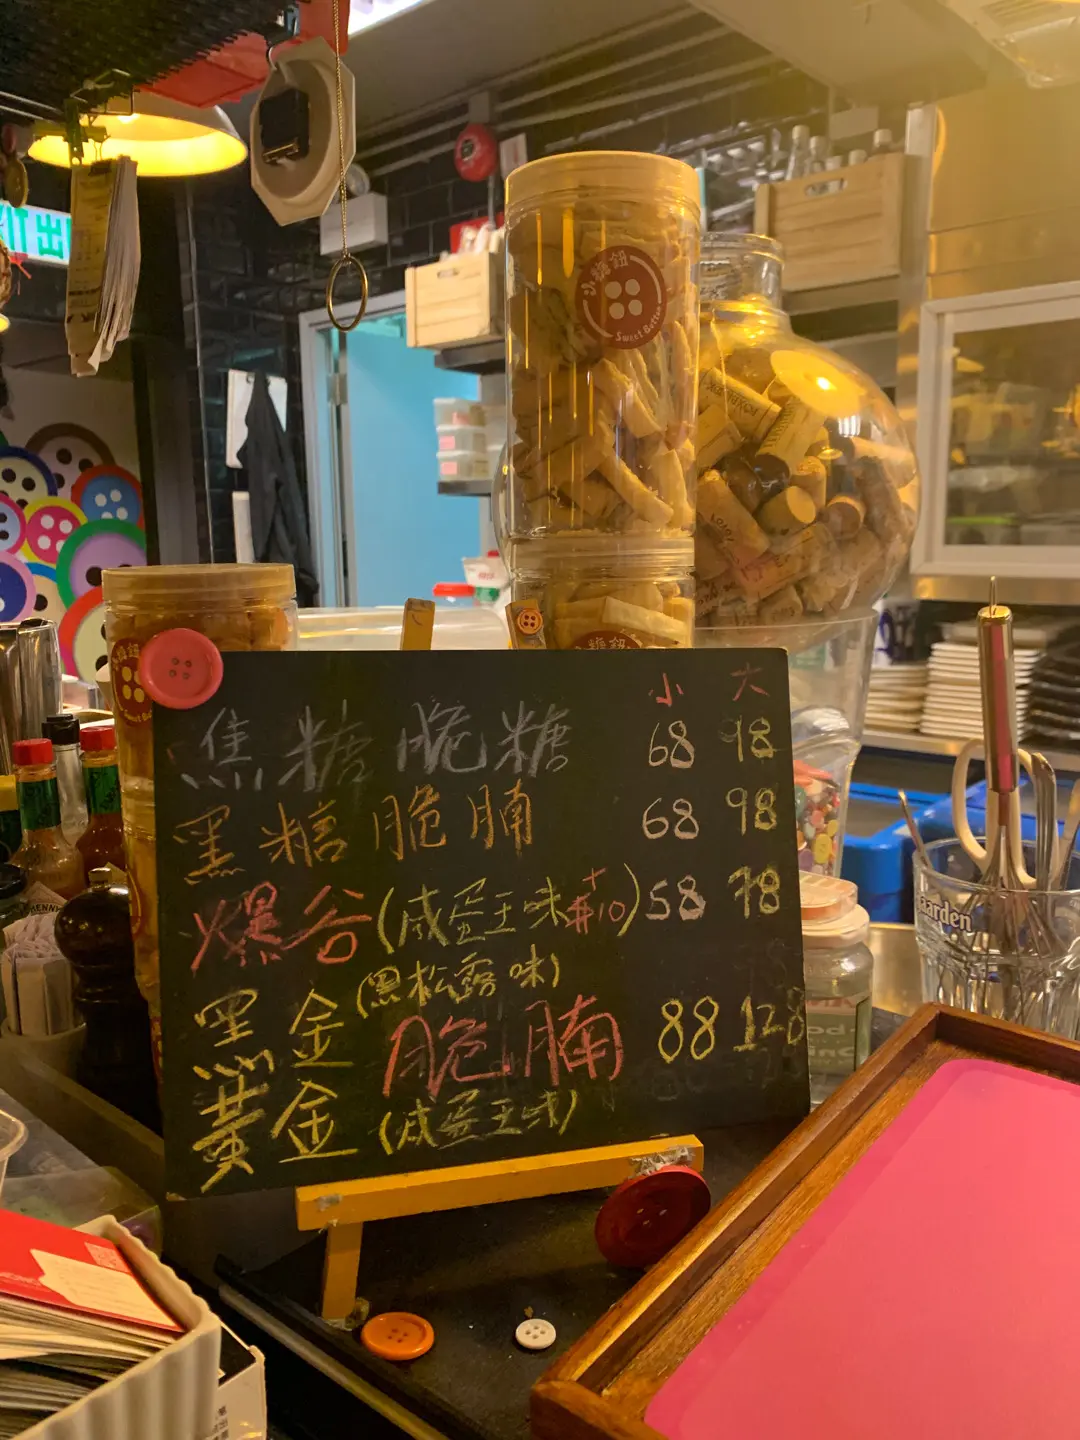 EXIT 出
小糖鈕
Sweet Button
小 大
焦糖脆糖 68 98
黑糖脆腩 68 98
爆谷(咸蛋王味+$10) 58 78
(黑松露味)
黑金 脆腩 88 128
黃金(咸蛋王味)
garden